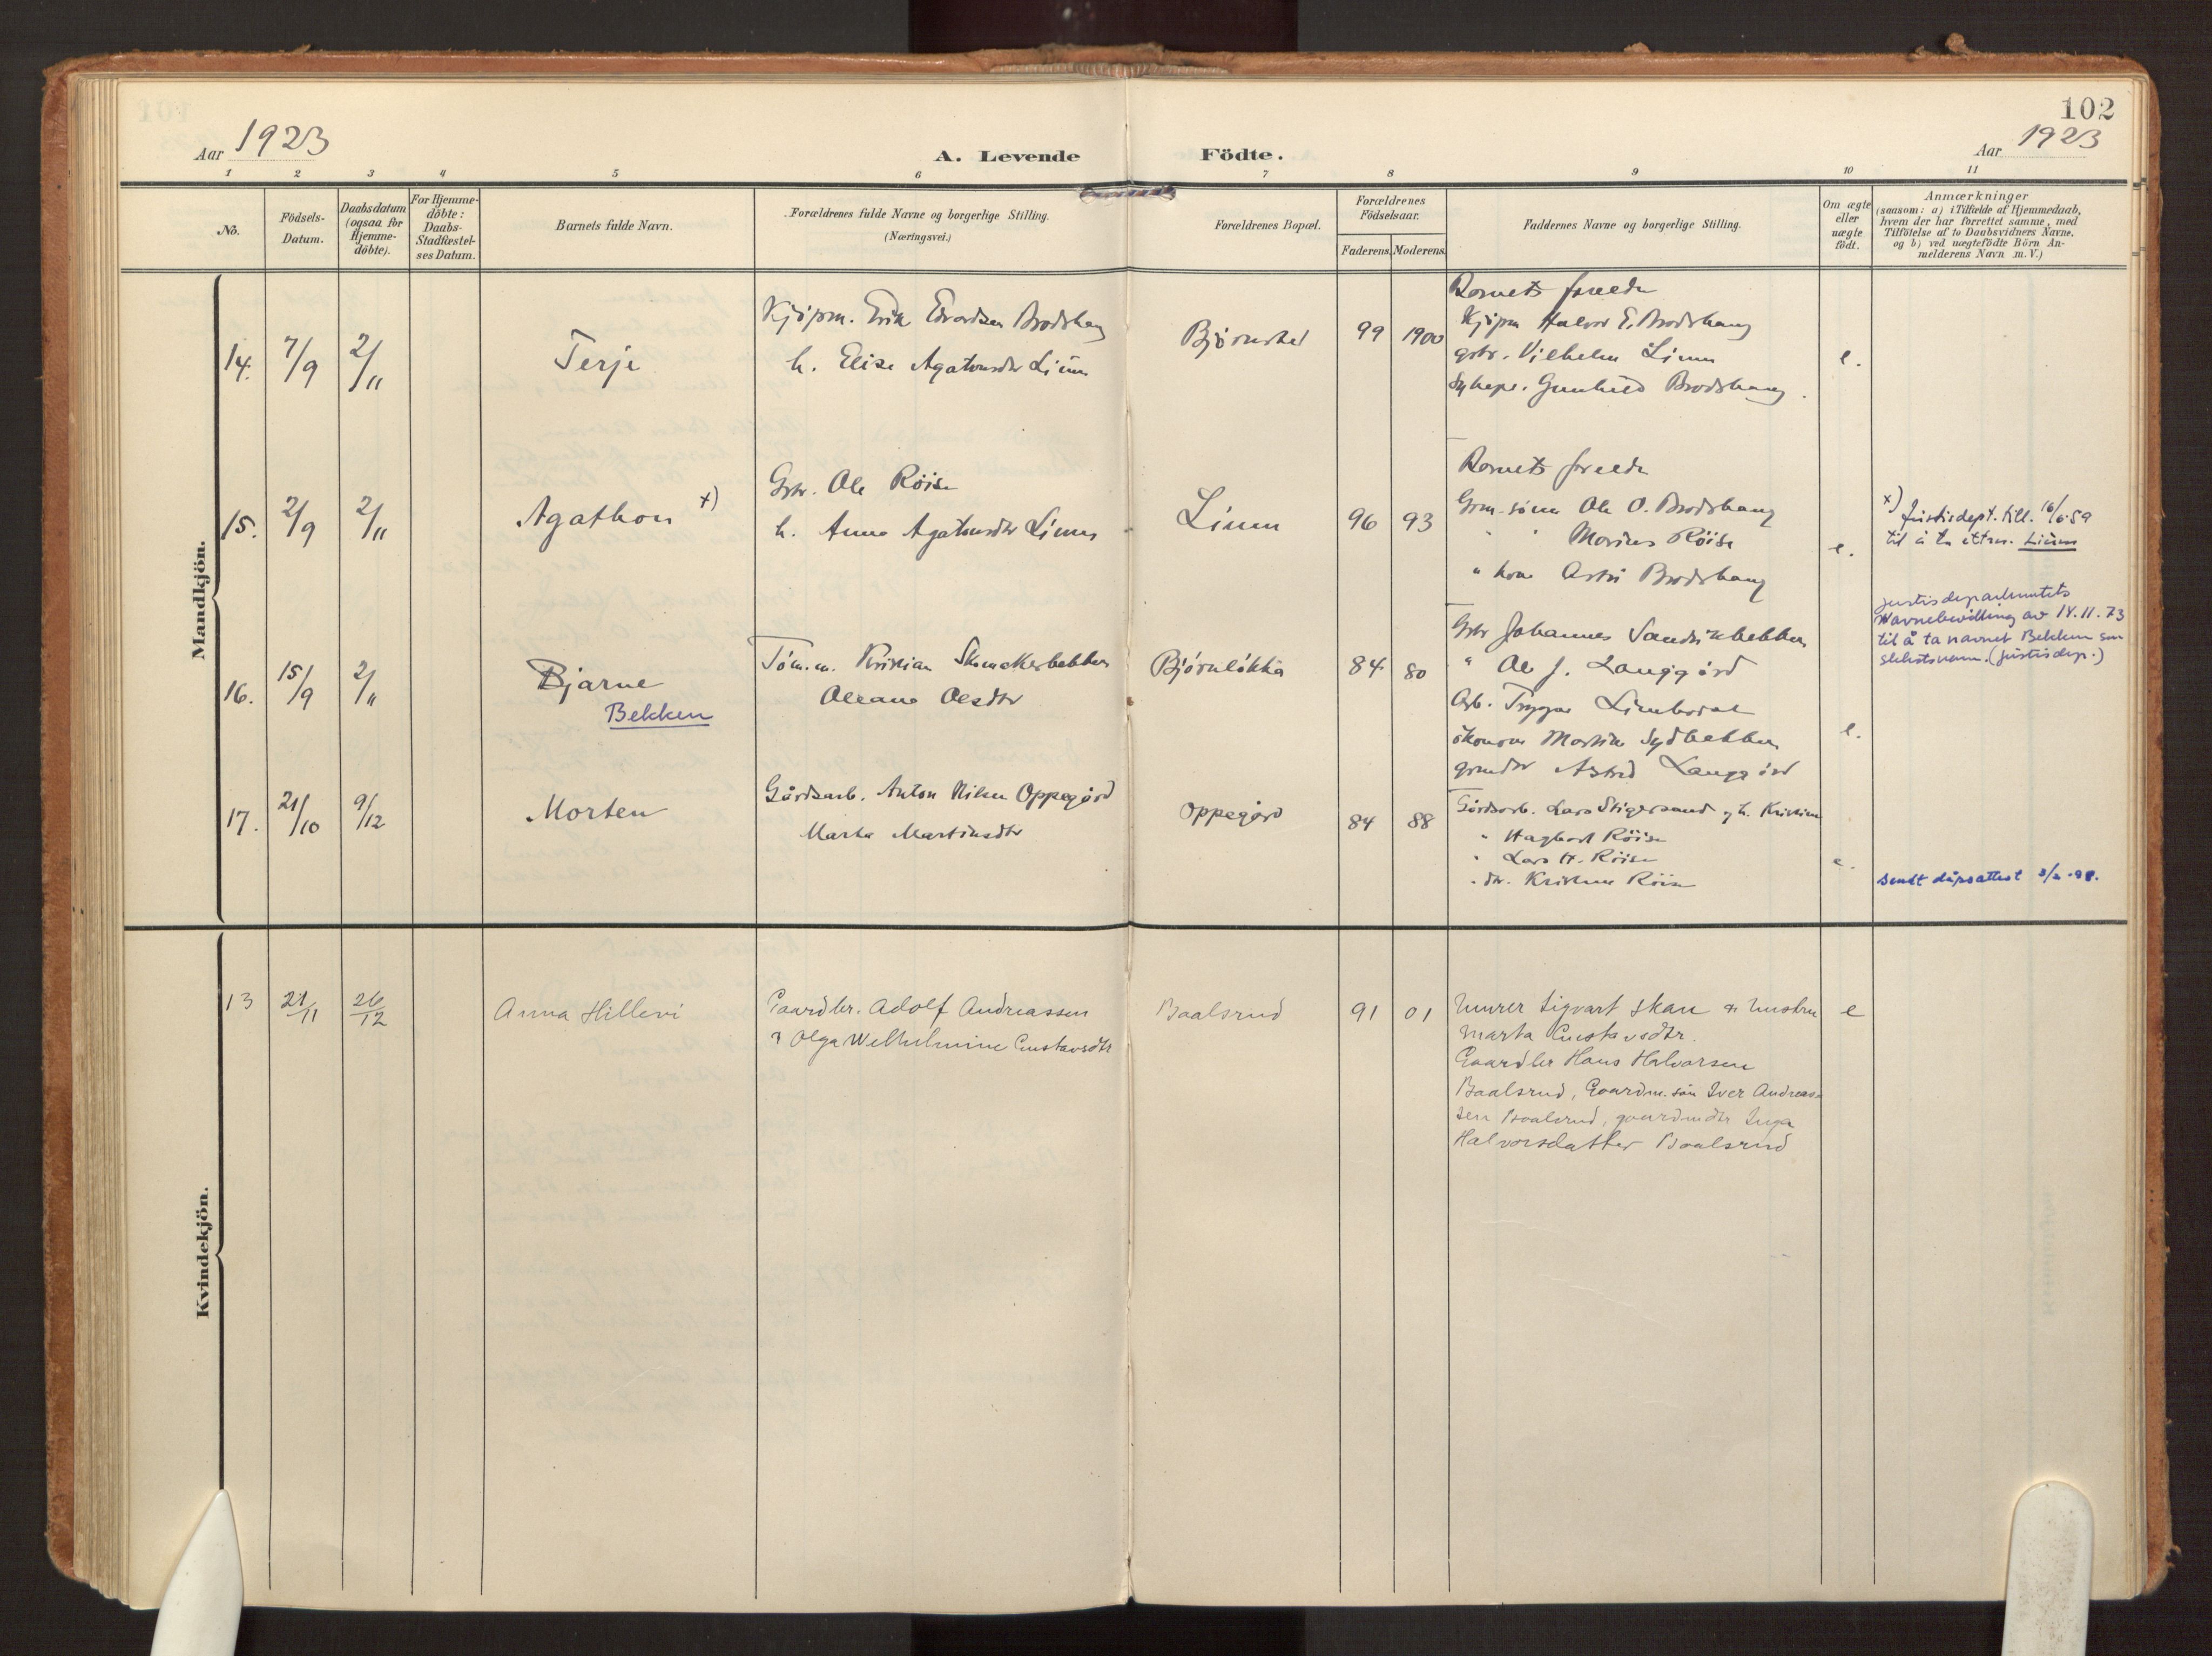 102
Aar 1923
A. Levende Födte.
Aar 1923
1 2 3 4 5 6 7 8 9 10 11
No.
Födsels-
Datum.
Daabsdatum
(ogsaa for
Hjemme-
döbte).
For Hjemme-
döbte:
Daabs-
Stadfæstel-
ses Datum.
Barnets fulde Navn.
Forældrenes fulde Navne og borgerlige Stilling.
(Næringsvei.)
Forældrenes Bopæl.
Forældrenes
Födselsaar.
Faderens. Moderens.
Faddernes Navne og borgerlige Stilling.
Om ægte
eller
uægte
födt.
Anmærkninger
(saasom: a) i Tilfælde af Hjemmedaab,
hvem der har forrettet samme, med
Tilföielse af to Daabsvidners Navne,
og b) ved uægtefödte Börn An-
melderens Navn m. V.)
Mandkjön.
14. 7/9 2/11 Terje
Kjøpm. Erik Edvardsen Brodshaug
h. Elise Agatonsdtr Linn
99 1900
Barnets foreldre
Kjøpm Halvor E. Brodshaug
gbr. Vilhelm Linn
Sykepl. Gunhild Brodshaug.
e.
15. 2/9 2/11 Agathon x)
Gbr. Ole Röise
h. Anna Agatonsdtr Linn
Linn
96 93
Barnets foreldre
Grm. sönn Ole O. Brodshaug
" " Marius Röise
" kone Astri Brodshaug
e.
x) Justisdept. till. 16/6 59
til å ta ettn. Lium
16. 15/9 2/11 Bjarne
Bekken
Töm.m. Kristian Skomakerbekken
Oleane Olesdtr
Bjørnløkka
84 80
Gbr Johannes Sandvikbekken
" Ole J. Langgård
Arb. Trygve
økonom Martin Sydbekken
grmdtr Astrid Langgård
e.
Justisdepartementets
Navnebevilling av 14.11.73
til å ta navnet Bekken som
slektsnavn. (Justisdep.)
17. 21/10 9/12 Morten
Gårdsarb. Anton Nilsen Oppegård
Marta Martinsdtr
Oppegård
84 88
Gårdsarb. Lars Stigersand og h. Kristine
" Hagbart Röise
" Lars H. Röise
" dtr. Kristine Röise
e.
Sendt dåpsattest 3/2-98.
Kvindekjön.
13 21/11 26/12 Anna Hillevi
Gaardbr. Adolf Andreassen
& Olga Welhelmine Gustavsdtr
Baalsrud
91 01
Murer Sigvart Skau & hustru
Marta Gustavsdtr.
Gaardbr Hans Halvorsen
Baalsrud, Gaardm. sön Iver Andreas-
sen Baalsrud, gaardmdtr Inga
Halvorsdatter Baalsrud
e